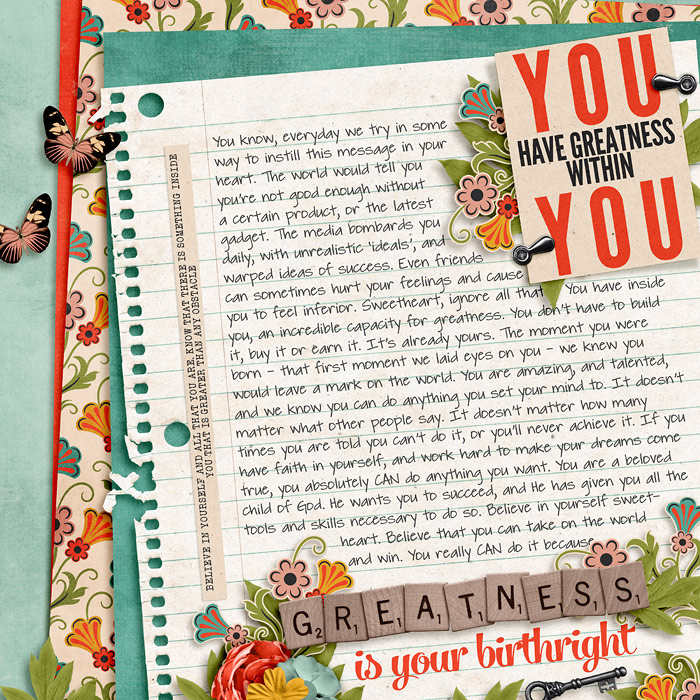 YOU
HAVE GREATNESS
WITHIN
YOU
BELIEVE IN YOURSELF AND ALL THAT YOU ARE. KNOW THAT THERE IS SOMETHING INSIDE
YOU THAT IS GREATER THAN ANY OBSTACLE
You know, everyday we try in some
way to instill this message in your
heart. The world would tell you
you're not good enough without
a certain product, or the latest
gadget. The media bombards you
daily, with unrealistic 'ideals', and
warped ideas of success. Even friends
can sometimes hurt your feelings and cause
you to feel inferior. Sweetheart, ignore all that. You have inside
you, an incredible capacity for greatness. You don't have to build
it, buy it or earn it. It's already yours. The moment you were
born - that first moment we laid eyes on you - we knew you
would leave a mark on the world. You are amazing, and talented,
and we know you can do anything you set your mind to. It doesn't
matter what other people say. It doesn't matter how many
times you are told you can't do it, or you'll never achieve it. If you
have faith in yourself, and work hard to make your dreams come
true, you absolutely CAN do anything you want. You are a beloved
child of God. He wants you to succeed, and He has given you all the
tools and skills necessary to do so. Believe in yourself sweet-
heart. Believe that you can take on the world
and win. You really CAN do it because
G2 R1 E1 A1 T1 N1 E1 S1 S1
is your birthright